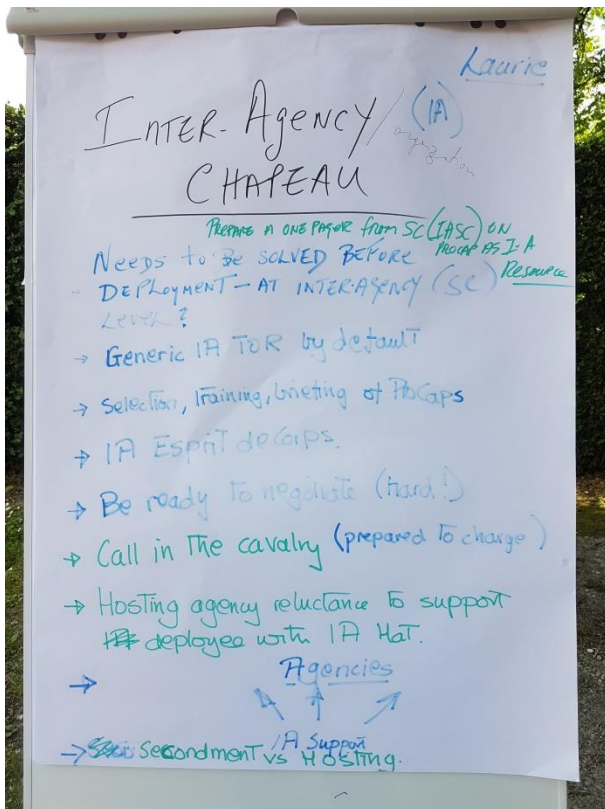 Laurie
INTER-AGENCY / (IA)
organization
CHAPEAU
PREPARE A ONE PAGER FROM SC (IASC) ON
PROCAP AS I-A
Resource
NEEDS TO BE SOLVED BEFORE
- DEPLOYMENT - AT INTER-AGENCY (SC)
LEVEL?
→ Generic IA TOR by default
→ Selection, Training, briefing of ProCaps
→ IA Esprit de Corps.
→ Be ready to negotiate (hard!)
→ Call in the cavalry (prepared to charge)
→ Hosting agency reluctance to support
deployee with IA Hat.
→ Agencies
IA Support
→ Secondment vs Hosting.